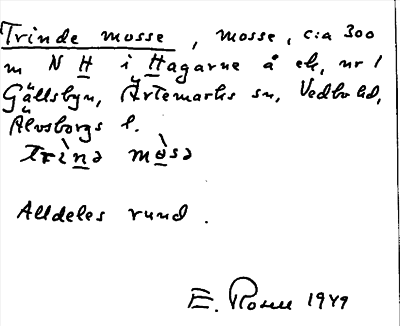 Trinde mosse, mosse, c:a 300
m N H i Hagarne å ek, nr 1
Gällsbyn, Ärtemarks sn, Vedbo hd,
Älvsborgs l.
trìnə mòsə
Alldeles rund.
E. Rosell 1949